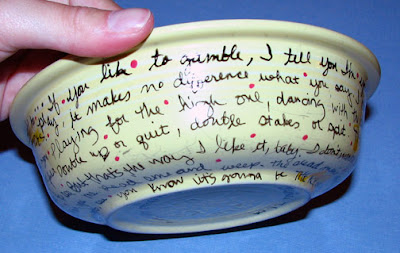 if you like to gamble, I tell you I'm
it makes no difference what you say
Playing for the high one, dancing with the
Double up or quit, double stakes or split
But that's the way I like it, baby I don't wan
read and weep. the dead man's
you know it's gonna be the